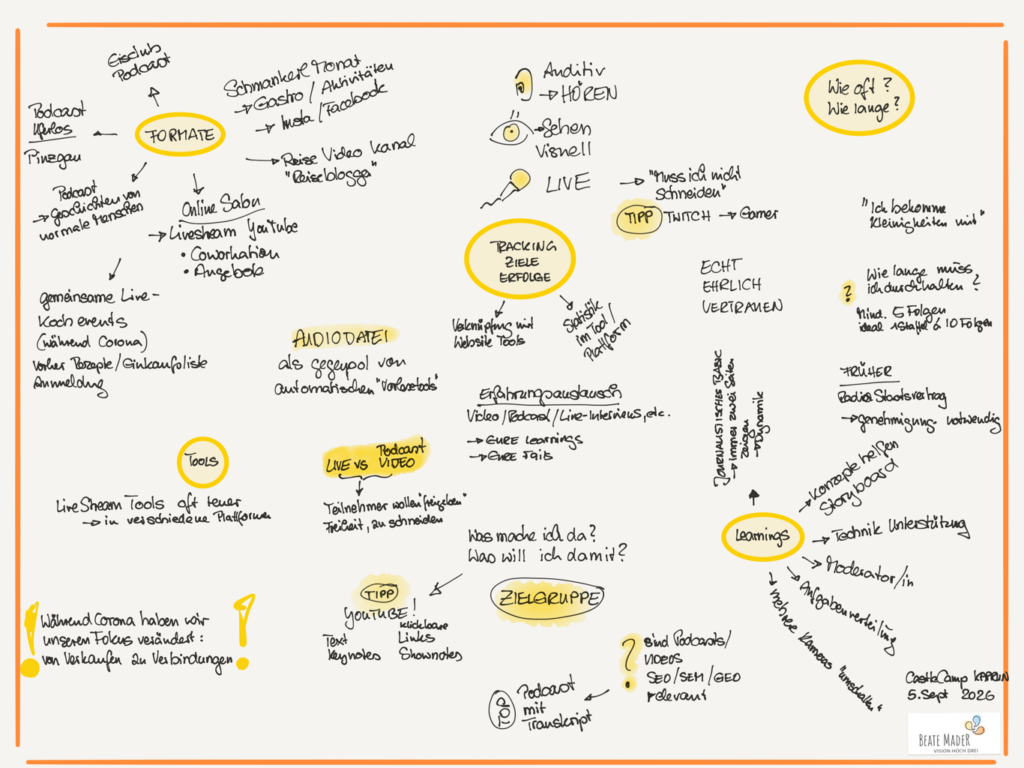 Eisclub
Podcast
Podcast
Pinzgau
FORMATE
Schmankerl Monat
→ Gastro / Aktivitäten
→ Insta / Facebook
→ Reise Video Kanal
"Reiseblogger"
Podcast
→ Geschichten von
normale Menschen
Online Salon
→ Livestream YouTube
• Coworkation
• Angebote
gemeinsame Live-
Koch events
(während Corona)
vorher Rezepte/Einkaufsliste
Anmeldung
Auditiv
→ HÖREN
→ Sehen
Visuell
LIVE
→ "Muss ich nicht
schneiden"
TIPP TWITCH → Gamer
Wie oft?
Wie lange?
TRACKING
ZIELE
ERFOLGE
Verknüpfung mit
Website Tools
Statistik
im Tool/
Plattform
ECHT
EHRLICH
VERTRAUEN
"Ich bekomme
Kleinigkeiten mit"
? Wie lange muss
ich durchhalten?
Mind. 5 Folgen
ideal 1 Staffel á 10 Folgen
FRÜHER
Radio Staatsvertrag
→ genehmigung notwendig
AUDIODATEI
als gegenpol von
automatischen "Vorlesetools"
Erfahrungsaustausch
Video/Podcast/Live-Interviews, etc.
→ EURE Learnings
→ EURE Fails
JOURNALISTISCHES BASIC
→ Immer zwei Seiten
zeigen
→ Dynamik
TOOLS
LiveStream Tools oft teuer
→ in verschiedene Plattformen
Podcast
LIVE vs VIDEO
Teilnehmer wollen "freigeben"
Freiheit, zu schneiden
Was mache ich da?
Was will ich damit?
ZIELGRUPPE
TIPP
YOUTUBE!
Text
Keynotes
klickbare
Links
Shownotes
Learnings
→ Konzepte helfen
Storyboard
→ Technik Unterstützung
→ Moderator/in
→ Aufgabenverteilung
→ mehrere Kameras "umschalten"
! Während Corona haben wir !
unseren Fokus verändert:
von Verkaufen zu Verbindungen
? Sind Podcasts/
VIDEOS
SEO/SEM/GEO
relevant
TOP
Podcast
mit
Transkript
CastleCamp KAPRUN
5. Sept 2026
BEATE MADER
VISION HOCH DREI